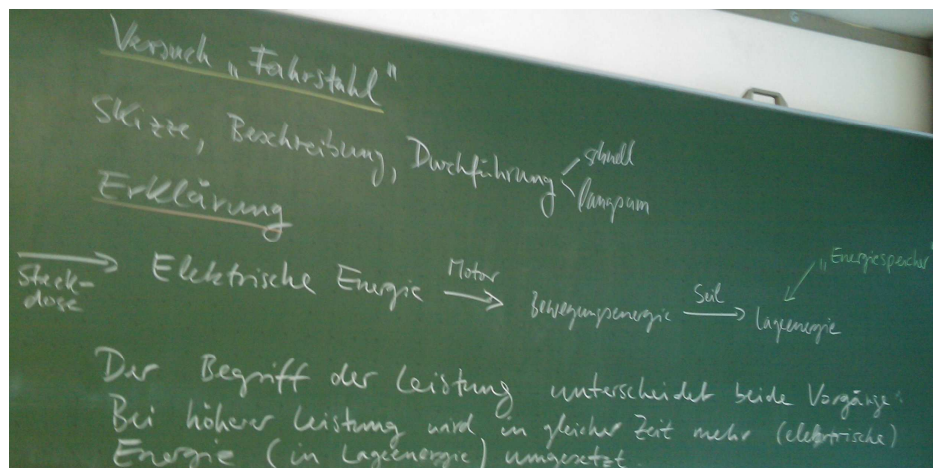 Versuch „Fahrstuhl"
Skizze, Beschreibung, Durchführung
schnell
langsam
Erklärung
Steck-
dose
Elektrische Energie
Motor
Bewegungsenergie
Seil
Lageenergie
„Energiespeicher"
Der Begriff der Leistung unterscheidet beide Vorgänge.
Bei höherer Leistung wird in gleicher Zeit mehr (elektrische)
Energie (in Lageenergie) umgesetzt.